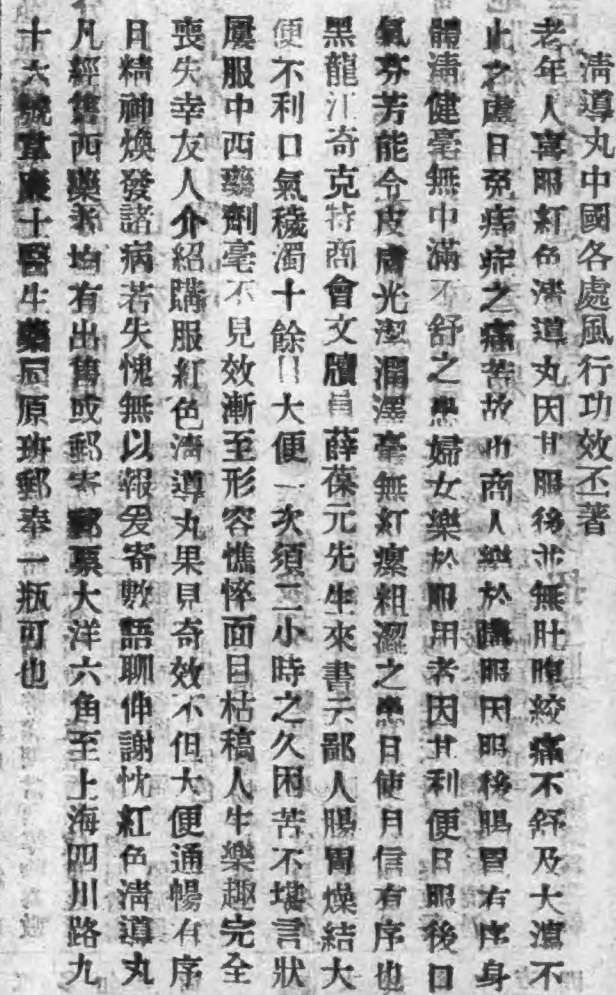 清導丸中國各處風行功效丕著
老年人喜服紅色清導丸因其服後並無肚腹絞痛不舒及大瀉不
止之慮且免痔症之痛苦故也商人樂於購服因服後腸胃有序身
體清健毫無中滿不舒之患婦女樂於服用者因其利便且服後口
氣芬芳能令皮膚光潔潤澤毫無紅瘰粗澀之患且使月信有序也
黑龍江奇克特商會文牘員薛葆元先生來書云鄙人腸胃燥結大
便不利口氣穢濁十餘日大便一次須二小時之久困苦不堪言狀
屢服中西藥劑毫不見效漸至形容憔悴面目枯稿人生樂趣完全
喪失幸友人介紹購服紅色清導丸果見奇效不但大便通暢有序
且精神煥發諸病若失愧無以報爰寄數語聊伸謝忱紅色清導丸
凡經售西藥者均有出售或郵寄郵票大洋六角至上海四川路九
十六號韋廉士醫生藥局原班郵奉一瓶可也